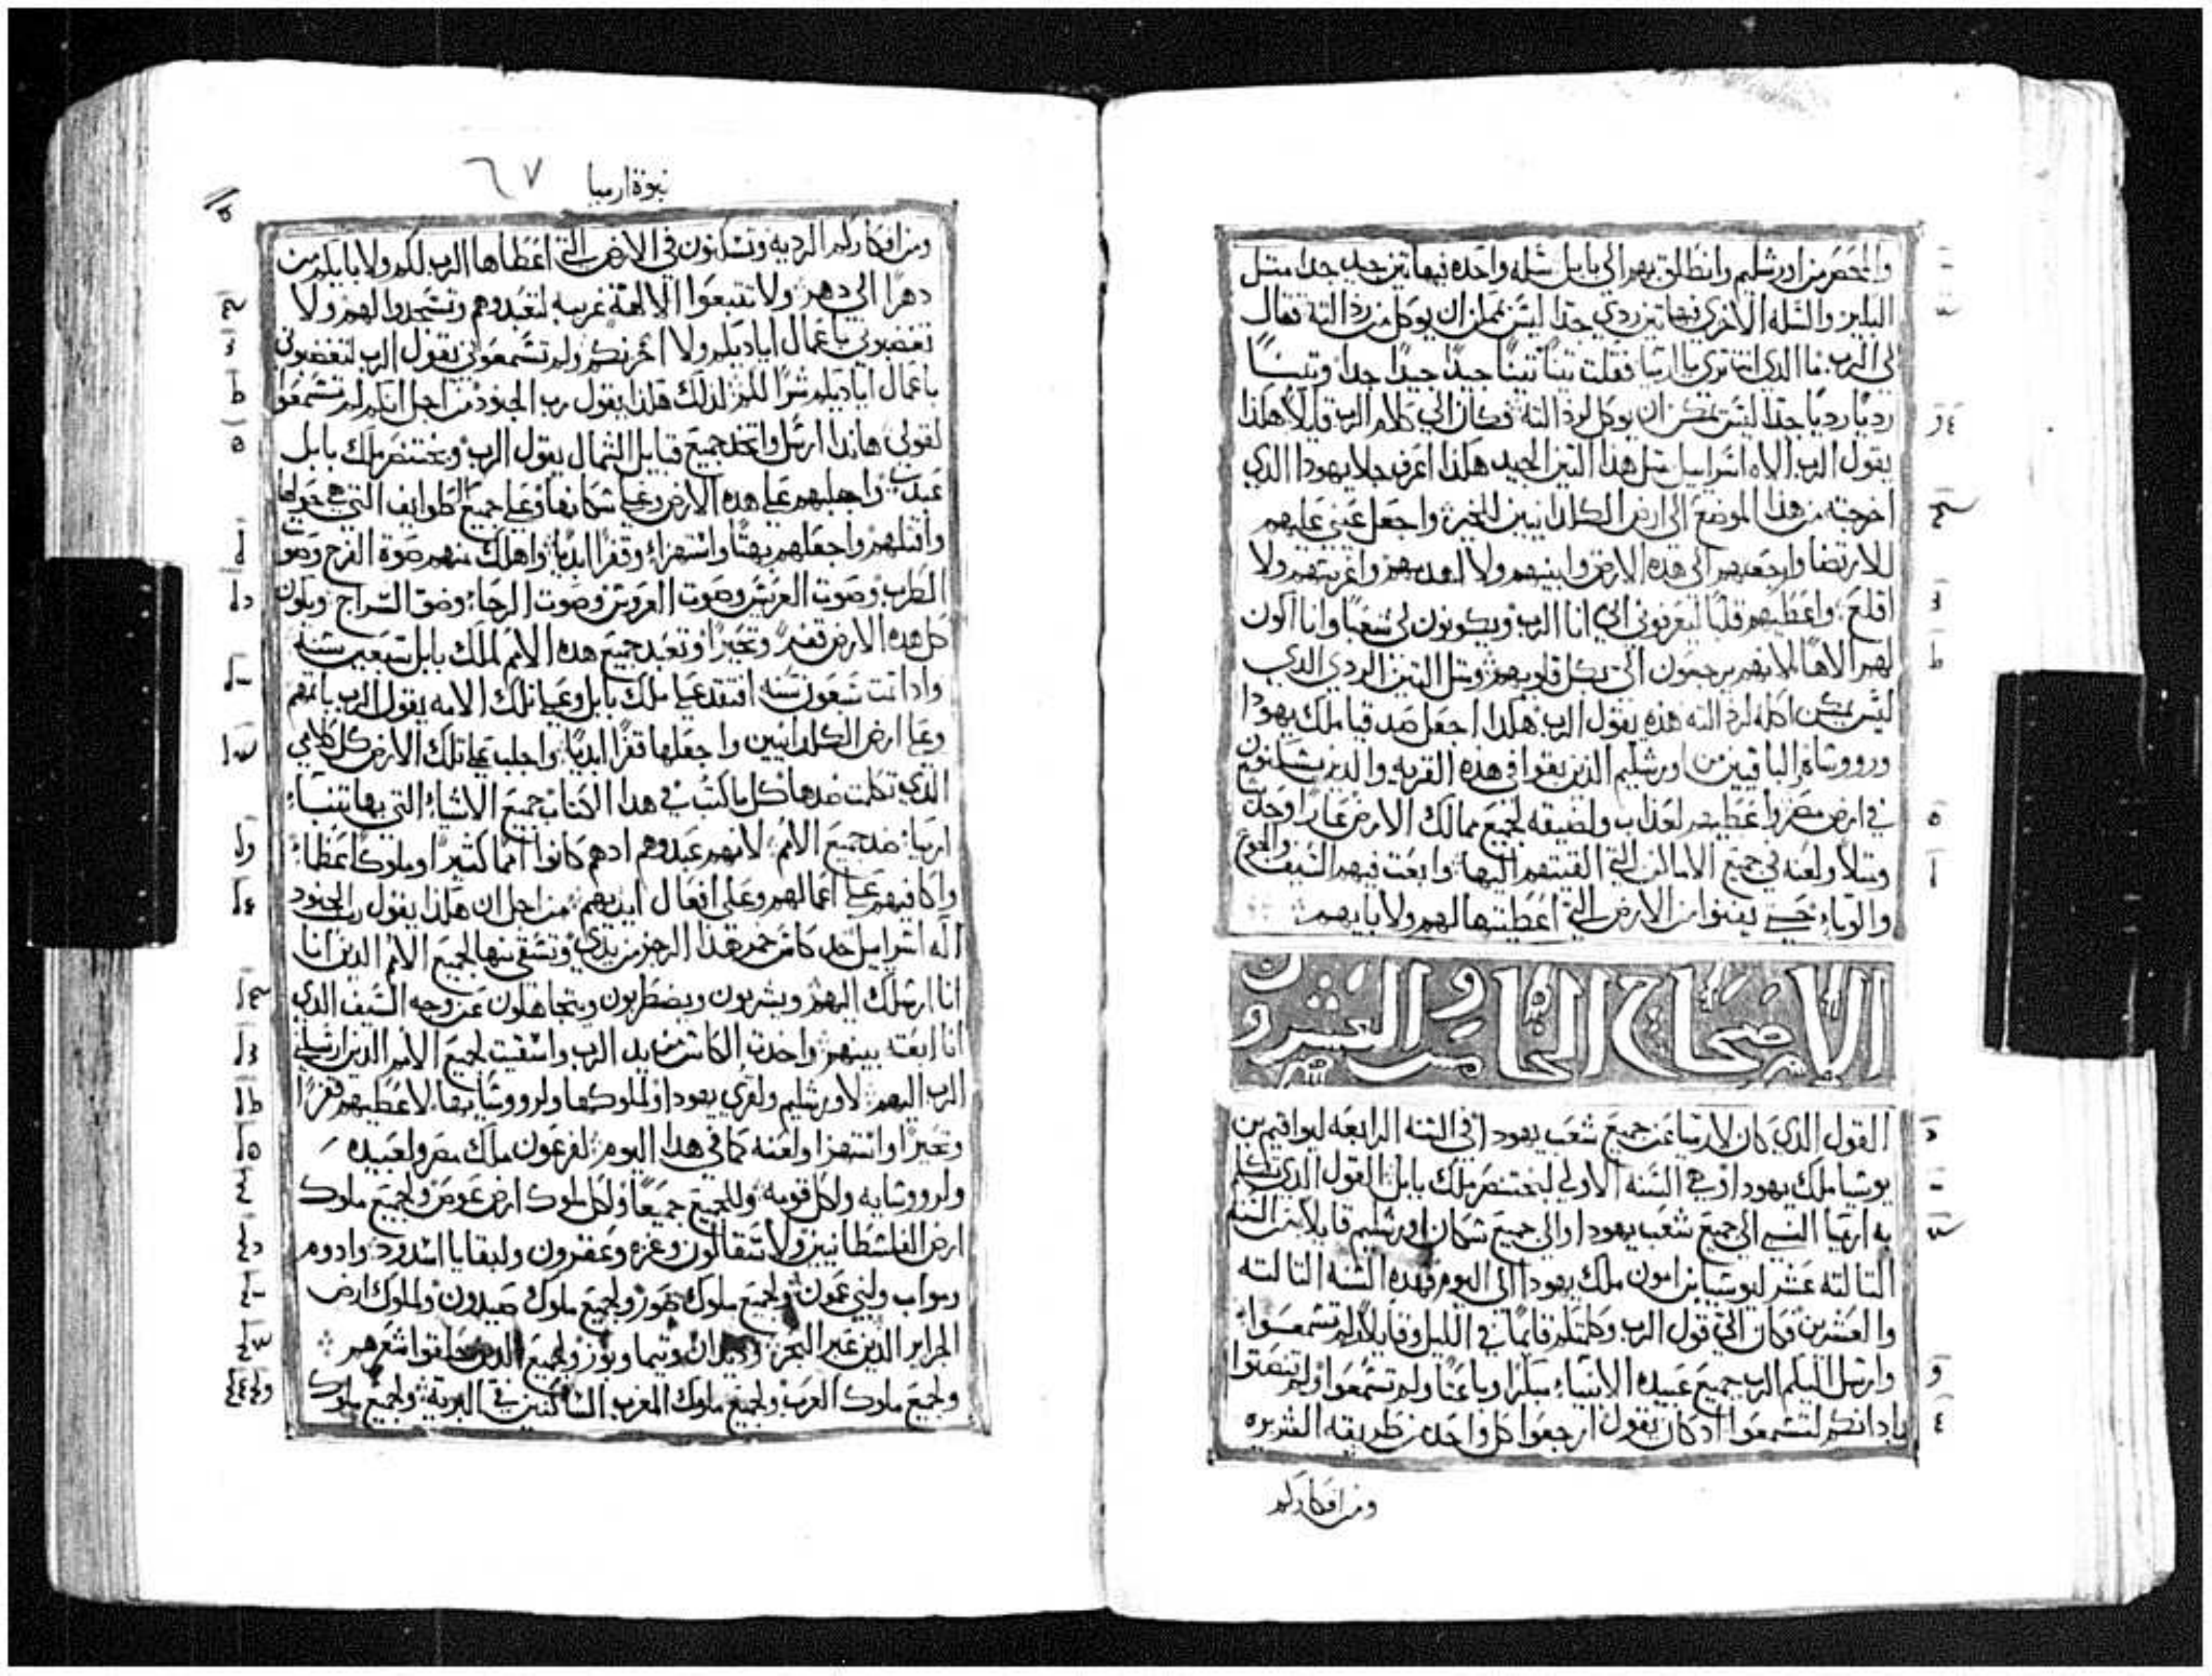 والمحصرين اورشليم وانطلق بهم الى بابل سله واحده فيها تين جيد جدا مثل
البكير والسله الاخرى فيها تين ردي جدا ليس يمكن ان يوكل من رداالته فقال
لى الرب ما الدي انت ترى يا ارميا فقلت تينًا تينًا جيدًا جيدًا جدًا وتينًا
رديًا رديًا جدًا ليس يمكن ان يوكل لرداالته فكان الي كلام الرب قايلًا هكذا
يقول الرب الاه اسراييل مثل هذا التين الجيد هكذا اعرف جلا يهودا الدي
اخرجته من هذا الموضع الى ارض الكلدانيين للخير واجعل عيني عليهم
للارتضا وارجعهم الى هده الارض وابنيهم ولا اهدمهم واغرسهم ولا
اقلع واعطيهم قلبًا ليعرفوني اني انا الرب ويكونون لى شعبًا وانا اكون
لهم الاهًا لانهم يرجعون الي بكل قلوبهم ومثل التين الردي الدي
ليس يمكن اكله لرداالته هذه يقول الرب هكدا اجعل صدقيا ملك يهودا
ورووساه والباقيين من اورشليم الدين بقوا في هذه القريه والدين يسكنون
في ارض مصر واعطيهم لعذاب ولضيقه لجميع ممالك الارض عارا وحديث
ومثلًا ولعنه في جميع الاماكن التي القيتهم اليها وابعت فيهم السيف والجوع
والوباء حتى يفنوا من الارض التي اعطيتها لهم ولابايهم
الاصحاح الخامس والعشرون
القول الدي كان لارميا عن جميع شعب يهودا في السنه الرابعه ليواقيم بن
يوشيا ملك يهودا وهي السنه الاولى لبختنصر ملك بابل القول الدي تكلم
به ارميا النبي الى جميع شعب يهودا والى جميع سكان اورشليم قايلا من السنه
التالته عشر ليوشيا بن امون ملك يهودا الى اليوم فهده السنه التالته
والعشرين فكان الي قول الرب وكلمتكم قايمًا في الليل وقايلًا ولم تسمعوا
وارسل اليكم الرب جميع عبيده الانبياء مبكرا وباعتًا ولم تسمعوا ولم تنصتوا
بادانكم لتسمعوا ادكان يقول ارجعوا كل واحد من طريقه الشريره
ومن افكاركم
نبوة ارميا ٦٧
ومن افكاركم الرديه وتسكنون في الارض التي اعطاها الرب لكم ولابايكم من
دهرا الى دهر ولا تتبعوا الالهة غريبه لتعبدوهم وتسجدوا لهم ولا
تغضبوني باعمال اياديكم ولا احزنكم ولم تسمعوني يقول الرب لتغضبوني
باعمال اياديكم شرًا لكم لدلك هكذا يقول رب الجنود من اجل انكم لم تسمعوا
لقولى هاندا ارسل واتخد جميع قبايل الشمال يقول الرب وبختنصر ملك بابل
عبدي واجلبهم على هده الارض وعلى سكانها وعلى جميع الطوايف التي هي حولها
واقتلهم واجعلهم بهتًا واستهزاء وقفرًا ابديًا واهلك منهم صوة الفرح وصوت
الطرب وصوت العريس وصوت العروس وصوت الرحاء وضو السراج ويكون
كل هده الارض قفرا وتحيرًا وتعبد جميع هده الامم لملك بابل سبعين سنه
وادا تمت سبعون سنه افتقد على ملك بابل وعلى تلك الامه يقول الرب باتمهم
وعلى ارض الكلدانيين واجعلها قفرًا ابديًا واجلب على تلك الارض كل كلامي
الدي تكلمت ضدها كل ما كتب في هدا الكتاب جميع الاشياء التي بها تنباء
ارميا ضد جميع الامم لانهم عبدوهم ادهم كانوا اممًا كثيرًا وملوكًا عظماء
واكافيهم على اعمالهم وعلى افعال ايديهم من اجل ان هكذا يقول رب الجنود
اله اسراييل خد كاس خمر هذا الرجز من يدي وتسقى منها لجميع الامم الدين انا
انا ارسلك اليهم ويشربون ويضطربون ويتجاهلون عن وجه السيف الدي
انا ابعته بينهم واخدت الكاس من يد الرب واسقيت لجميع الامم الدين ارسلني
الرب اليهم لاورشليم ولقرى يهودا ولملوكها ولرووسايها لاعطيهم قفرًا
وتحيرًا واستهزا ولعنه كما في هدا اليوم لفرعون ملك مصر ولعبيده
ولرووسايه ولكل قومه وللجميع جميعًا ولكل ملوك ارض عوص ولجميع ملوك
ارض الفلسطانيين ولاسقالون وغزه وعقرون ولبقايا اسدود وادوم
ومواب ولبني عمون ولجميع ملوك صور ولجميع ملوك صيدون ولملوك ارض
الجزاير الدين عبر البحر وديدان وتيما وبوز ولجميع الدين حلقوا شعرهم
ولجميع ملوك العرب ولجميع ملوك المغرب الساكنين في البرية ولجميع ملوك